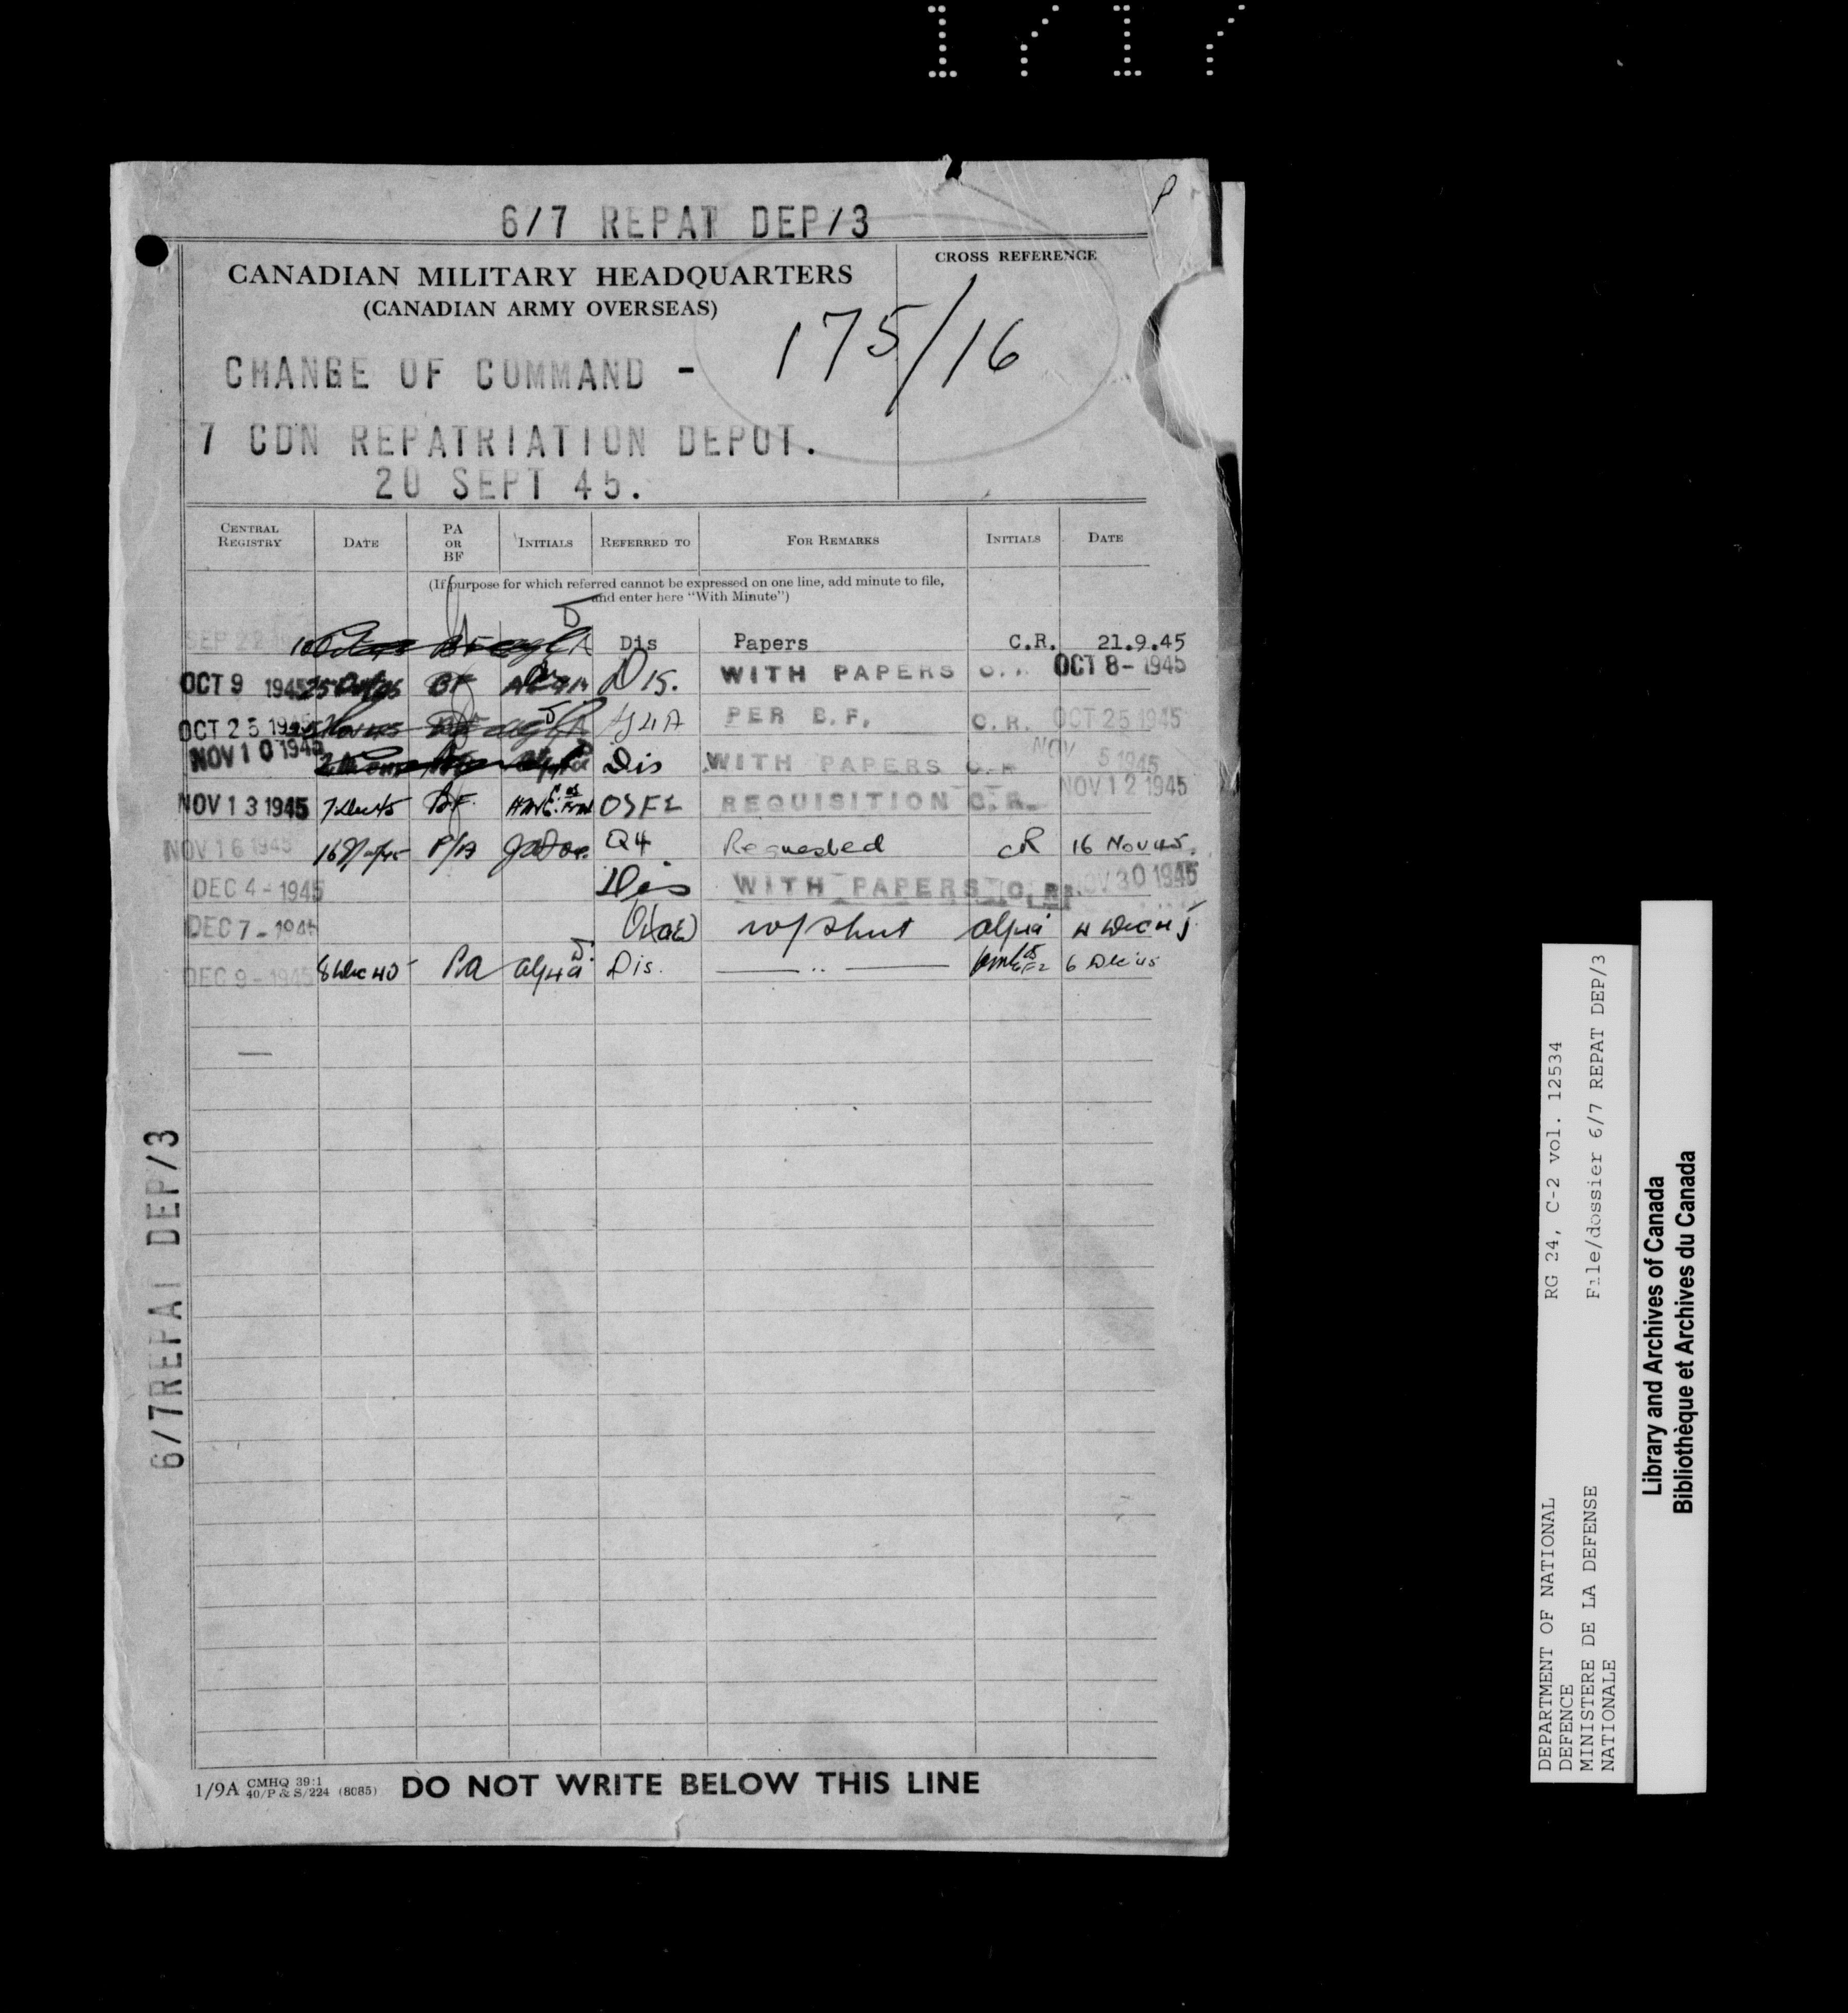 6/7 REPAT DEP/3
CANADIAN MILITARY HEADQUARTERS
(CANADIAN ARMY OVERSEAS)
CROSS REFERENCE
175/16
CHANGE OF COMMAND -
7 CDN REPATRIATION DEPOT.
20 SEPT 45.
CENTRAL REGISTRY DATE PA OR BF INITIALS REFERRED TO FOR REMARKS INITIALS DATE
(If purpose for which referred cannot be expressed on one line, add minute to file,
and enter here "With Minute")
SEP 22 Dis Papers C.R. 21.9.45
OCT 9 1945 BF Dis. WITH PAPERS OCT 8-1945
OCT 25 1945 PER B.F. C.R. OCT 25 1945
NOV 10 1945 Dis WITH PAPERS C.R NOV 5 1945
NOV 13 1945 7 Dec 45 BF. REQUISITION C.R. NOV 12 1945
NOV 16 1945 P/A Q4 Requested CR 16 Nov 45.
DEC 4-1945 Dis WITH PAPERS C.R. NOV 30 1945
DEC 7-1945
DEC 9-1945 Pa Dis. — .. — 6 Dec 45
6/7 REPAT DEP/3
1/9A CMHQ 39:1 40/P & S/224 (8085) DO NOT WRITE BELOW THIS LINE
DEPARTMENT OF NATIONAL DEFENCE
MINISTERE DE LA DEFENSE NATIONALE
RG 24, C-2 vol. 12534
File/dossier 6/7 REPAT DEP/3
Library and Archives of Canada
Bibliothèque et Archives du Canada